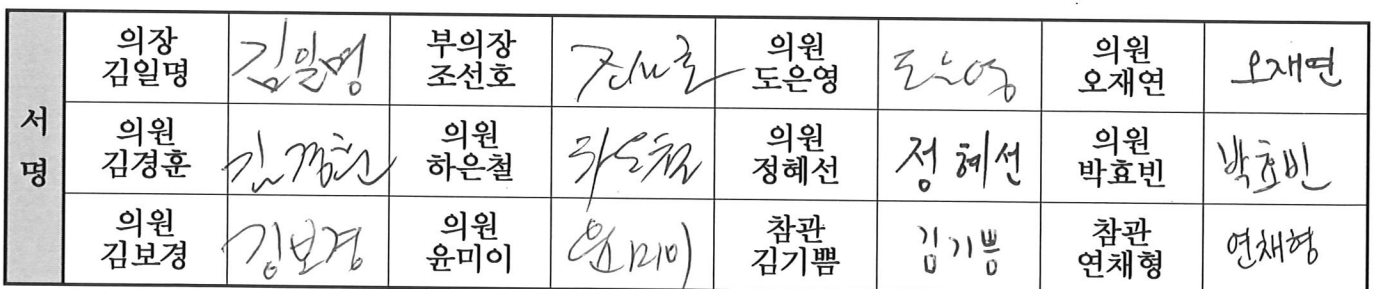 서명
의장 김일명 김일명 부의장 조선호 조선호 의원 도은영 도은영 의원 오재연 오재연
의원 김경훈 김경훈 의원 하은철 하은철 의원 정혜선 정혜선 의원 박효빈 박효빈
의원 김보경 김보경 의원 윤미이 윤미이 참관 김기쁨 김기쁨 참관 연채형 연채형